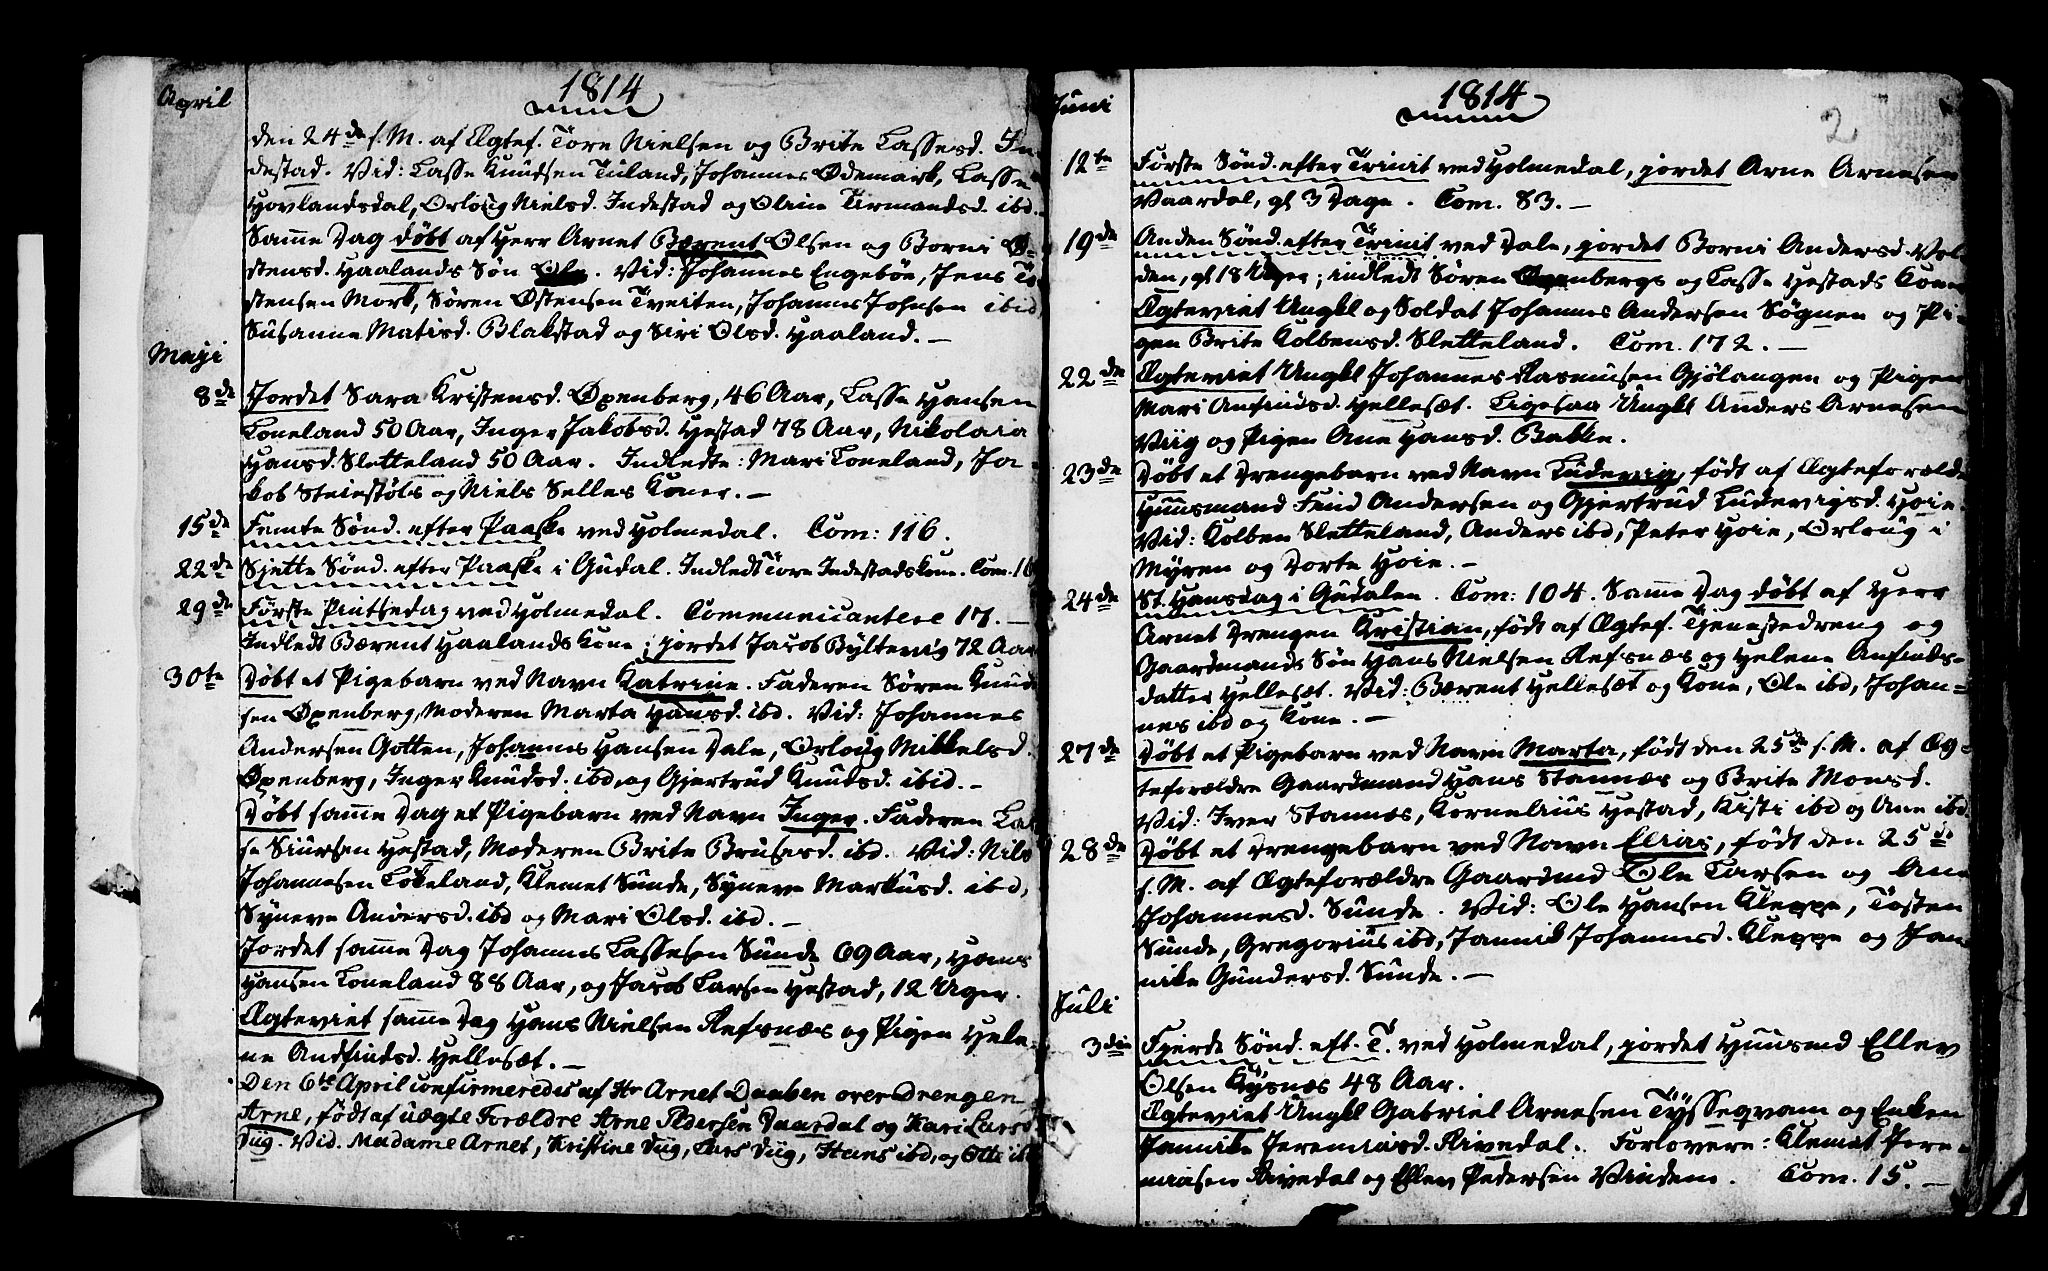 April
1814
den 24de s. M. af Ægtef. Tore Nielsen og Brite Lassesd. In-
destad. Vid: Lasse Knudsen Tuland, Johannes Ødemark, Lasse
Hovlandsdal, Orloug Nielsd. Indestad og Oline Tormondsd. ibd.
Samme Dag døbt af Herr Arnet Bærent Olsen og Borni Ø-
stensd. Haalands Søn Ole. Vid: Johannes Engebøe, Jens To-
stensen Mork, Søren Østensen Tveiten, Johannes Johnsen ibid,
Susanne Matisd. Blakstad og Siri Olsd. Haaland. —
Maji
8de Jordet Sara Kristensd. Øxenberg, 46 Aar, Lasse Hansen
Loneland 50 Aar, Inger Jakobsd. Hestad 78 Aar, Nikolaia
Hansd. Sletteland 50 Aar. Indledte: Mari Loneland, Ja-
kob Steiestøls og Niels Selles Koner. —
15de Femte Sønd. efter Paaske ved Holmedal. Com: 116.
22de Sjette Sønd. efter Paaske i Gudal. Indledt Tore Indestads kone. Com. 16
29de Første Pintsedag ved Holmedal. Communicantere 17. —
Indledt Bærent Haalands Kone; jordet Jacob Byltevig 72 Aar
30te Døbt et Pigebarn ved Navn Katrine. Faderen Søren Knud-
sen Øxenberg, Moderen Marta Hansd. ibd. Vid: Johannes
Andersen Gotten, Johannes Hansen Dale, Orloug Mikkelsd.
Øxenberg, Inger Knudsd. ibd, og Gjertrud Knudsd. ibid. —
Døbt samme Dag et Pigebarn ved Navn Inger. Faderen Las-
se Siursen Hestad, Moderen Brite Brusesd. ibd. Vid: Nils
Johannesen Løkeland, Klemet Sunde, Syneve Markusd. ibd,
Syneve Andersd. ibd og Mari Olsd. ibd. —
Jordet samme Dag Johannes Lassesen Sunde 69 Aar, Hans
Hansen Loneland 88 Aar, og Jacob Larsen Hestad, 12 Uger.
Ægteviet samme Dag Hans Nielsen Refsnæs og Pigen Hele-
ne Andfindsd. Hellesæt. —
Den 6te April confirmeredes af Hr Arnet Daaben over Drengen
Arne, født af uægte Forældre Arne Pedersen Vaardal og Kari Larsd.
Viig. Vid. Madame Arnet, Kristine Viig, Lars Viig, Hans ibd, og Otte ibd
Juni
1814
2
12te Første Sønd. efter Trinit ved Holmedal, jordet Arne Arnesen
Vaardal, gl 3 Dage. Com. 83. —
19de Anden Sønd. efter Trinit ved Dale, jordet Borni Andersd. Vol-
den, gl 18 Uger; indledt Søren Øxenbergs og Lasse Hestads Koner
Ægteviet Ungkl og Soldat Johannes Andersen Søgnen og Pi-
gen Brite Kolbensd. Sletteland. Com. 172. —
22de Ægteviet Ungkl Johannes Rasmusen Gjølangen og Pigen
Mari Anfindsd. Hellesæt. Ligesaa Ungkl Anders Arnesen
Viig og Pigen Ane Hansd. Bakke.
23de Døbt et Drengebarn ved Navn Ludevig, født af Ægteforældre
Huusmand Feid Andersen og Gjertrud Ludevigsd. Hoie.
Vid: Kolben Sletteland, Anders ibd, Peter Hoie, Orloug i
Myren og Dorte Hoie. —
24de St. Hansdag i Gudalen. Com: 104. Samme Dag døbt af Herr
Arnet Drengen Kristian, født af Ægtef. Tjenestedreng og
Gaardmands Søn Hans Nielsen Refsnæs og Helene Anfinds-
datter Hellesæt. Vid: Bærent Hellesæt og Kone, Ole ibd, Johan-
nes ibd og Kone. —
27de Døbt et Pigebarn ved Navn Marta, født den 25de s. M. af Æg-
teforældre Gaardmand Hans Stannæs og Brite Monsd.
Vid: Iver Stannæs, Kornelius Hestad, Kisti ibd og Ane ibd
28de Døbt et Drengebarn ved Navn Elias, født den 25de
s. M. af Ægteforældre Gaardmd Ole Larsen og Ane
Johannesd. Sunde. Vid: Ole Hansen Kleppe, Tosten
Sunde, Gregorius ibd, Jannik Johannesd. Kleppe og Jan-
nike Gundersd. Sunde. —
Juli
3die Fjerde Sønd. eft. T. ved Holmedal, jordet Huusmd Ellev
Olsen Kysnæs 48 Aar.
Ægteviet Ungkl Gabriel Arnesen Tysseqvam og Enken
Jannike Jeremiasd. Rivedal. Forlovere: Klemet Jere-
miasen Rivedal og Ellev Pedersen Vindem. Com. 15. —